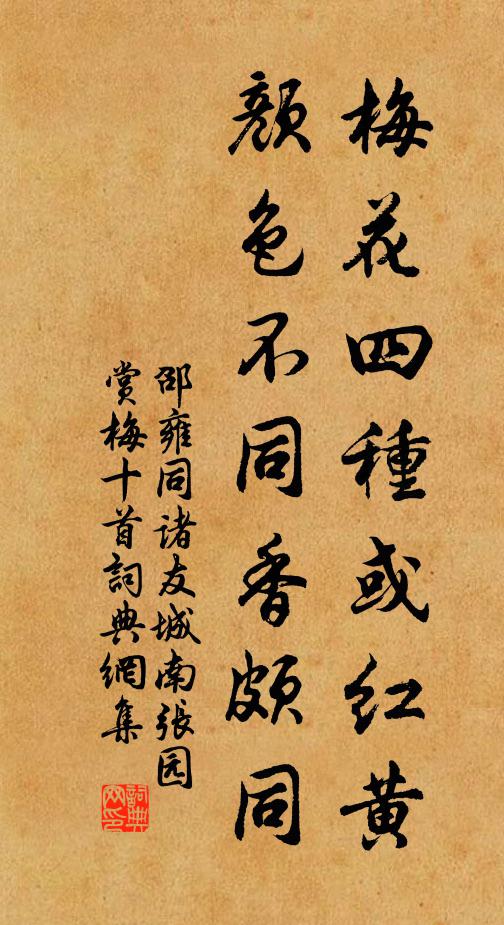 梅花四種或红黄
顏色不同香頗同
邵雍同诸友城南張园
賞梅十首詞典網集
詞典网印